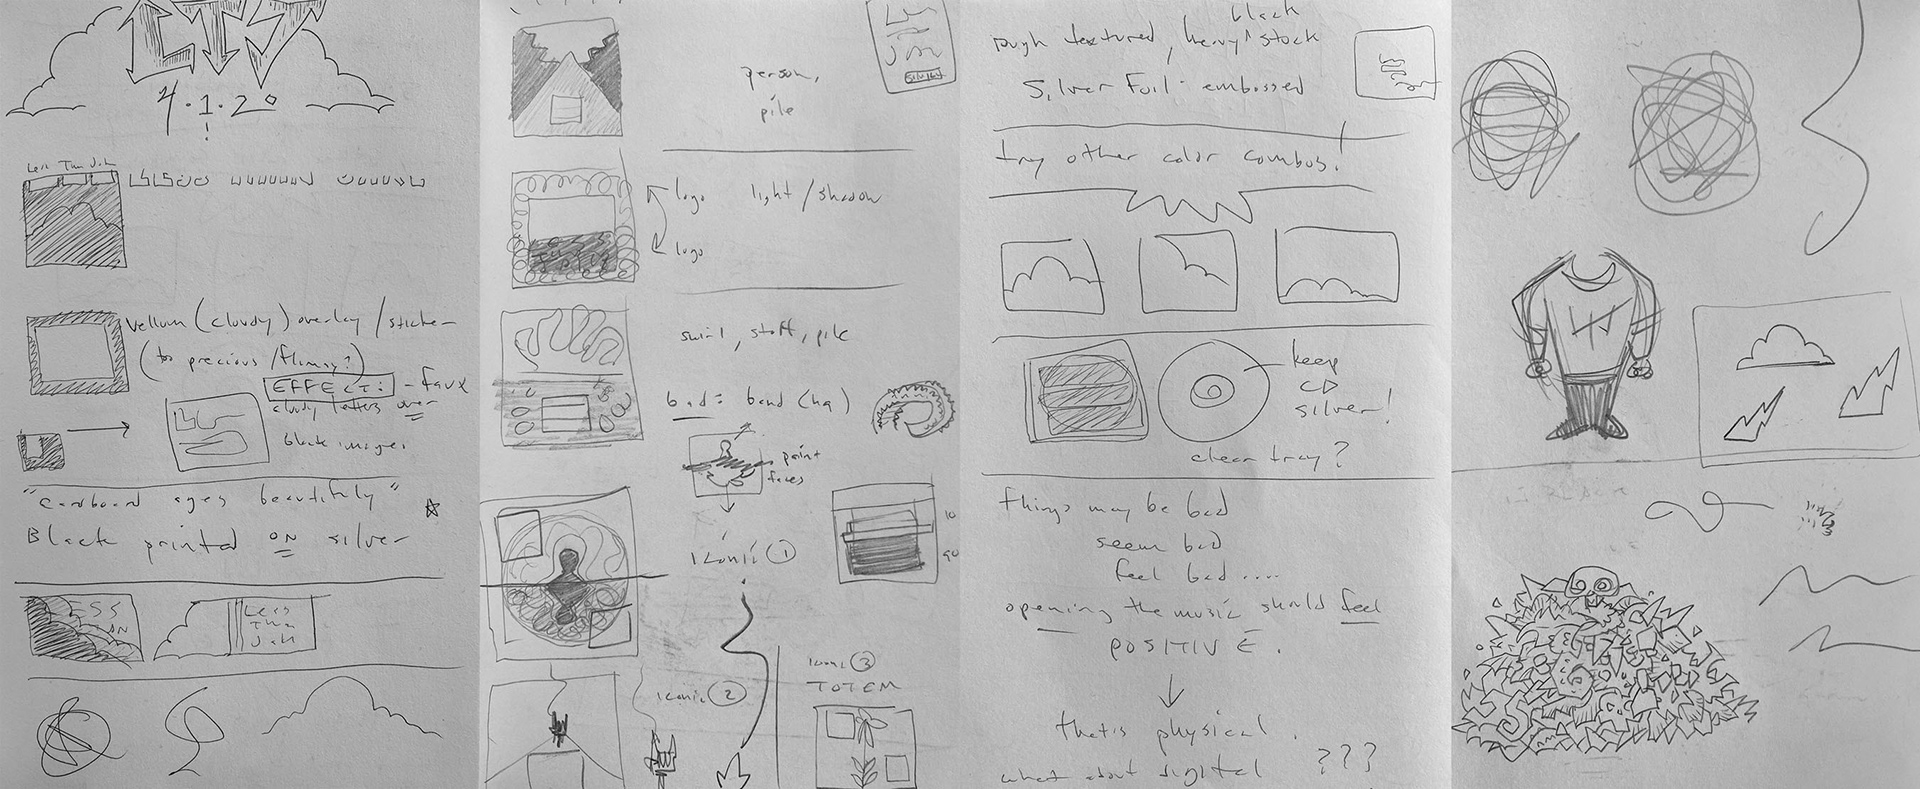 LTJ
4.1.20
!
Less Than Jake
vellum (cloudy) overlay / sticker
(too precious / flimsy?)
EFFECT: - faux
cloudy letters over
black image.
"cardboard ages beautifully"
Black printed ON silver
ESS
AN
Less
Than
Jake
person,
pile
logo
light / shadow
logo
swirl, stuff, pile
bad = band (ha)
paint
faces
iconic 1
iconic 2
iconic 3
TOTEM
10
90
black
rough textured, heavy ^ stock
Silver Foil - embossed
try other color combos!
keep
CD
silver!
clear tray?
things may be bad
seem bad
feel bad....
opening the music should feel
POSITIVE.
that's physical.
what about digital ???